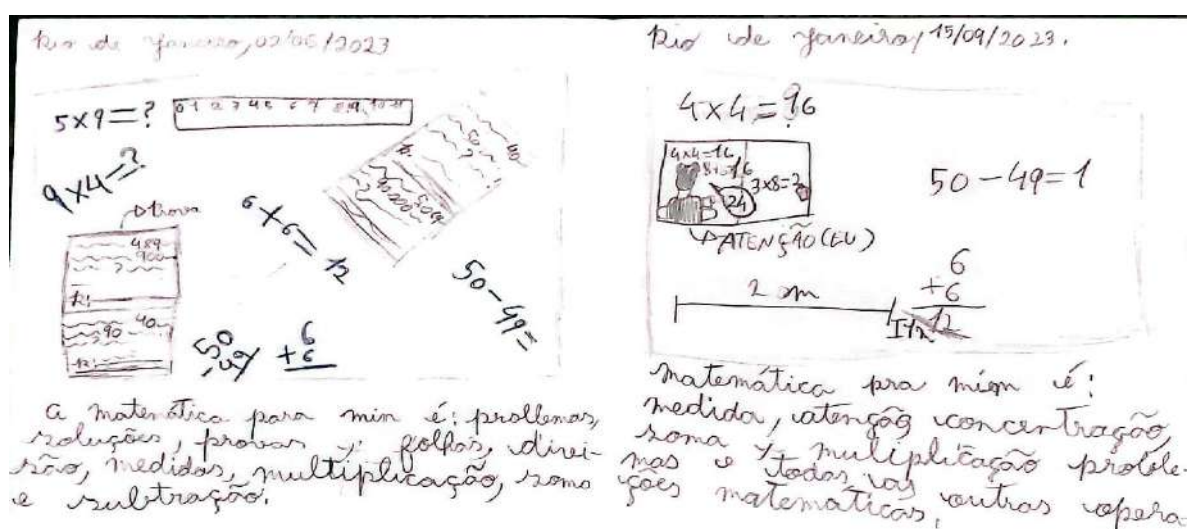 Rio de Janeiro, 02/06/2023
5x9=?
9x4=?
Prova
489
900
?
R:
90 40
R:
6+6=12
50
-49
6
+6
50-49=
a matemática para min é: problemas,
soluções, provas y: folhas, divi-
são, medidas, multiplicação, soma
e subtração.
Rio de Janeiro, 15/09/2023.
4x4=16
4x4=16
8+8=16
3x8=?
24
ATENÇÃO (EU)
50-49=1
2 cm
6
+6
12
matemática pra mim é:
medida, atenção concentração,
soma y, muliplicação proble-
mas e todas as outras opera-
ções matemáticas.